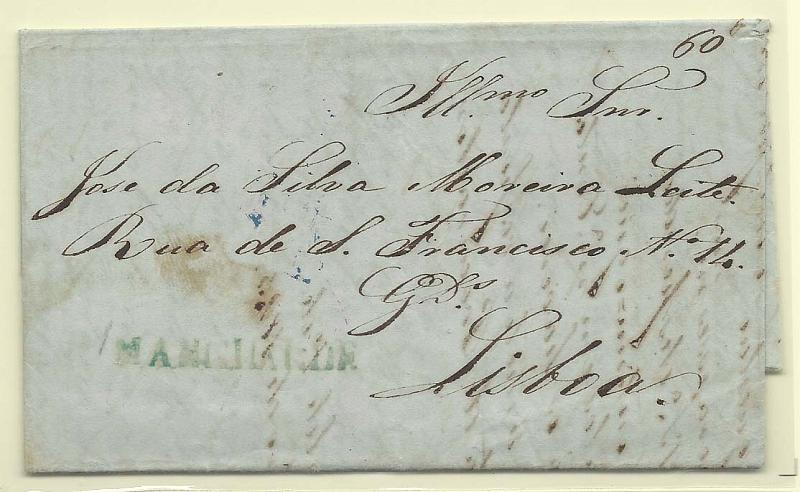 60
Ill.mo Snr.
Jose da Silva Moreira Leite.
Rua de S. Francisco No. 14.
Gds.
Lisboa.